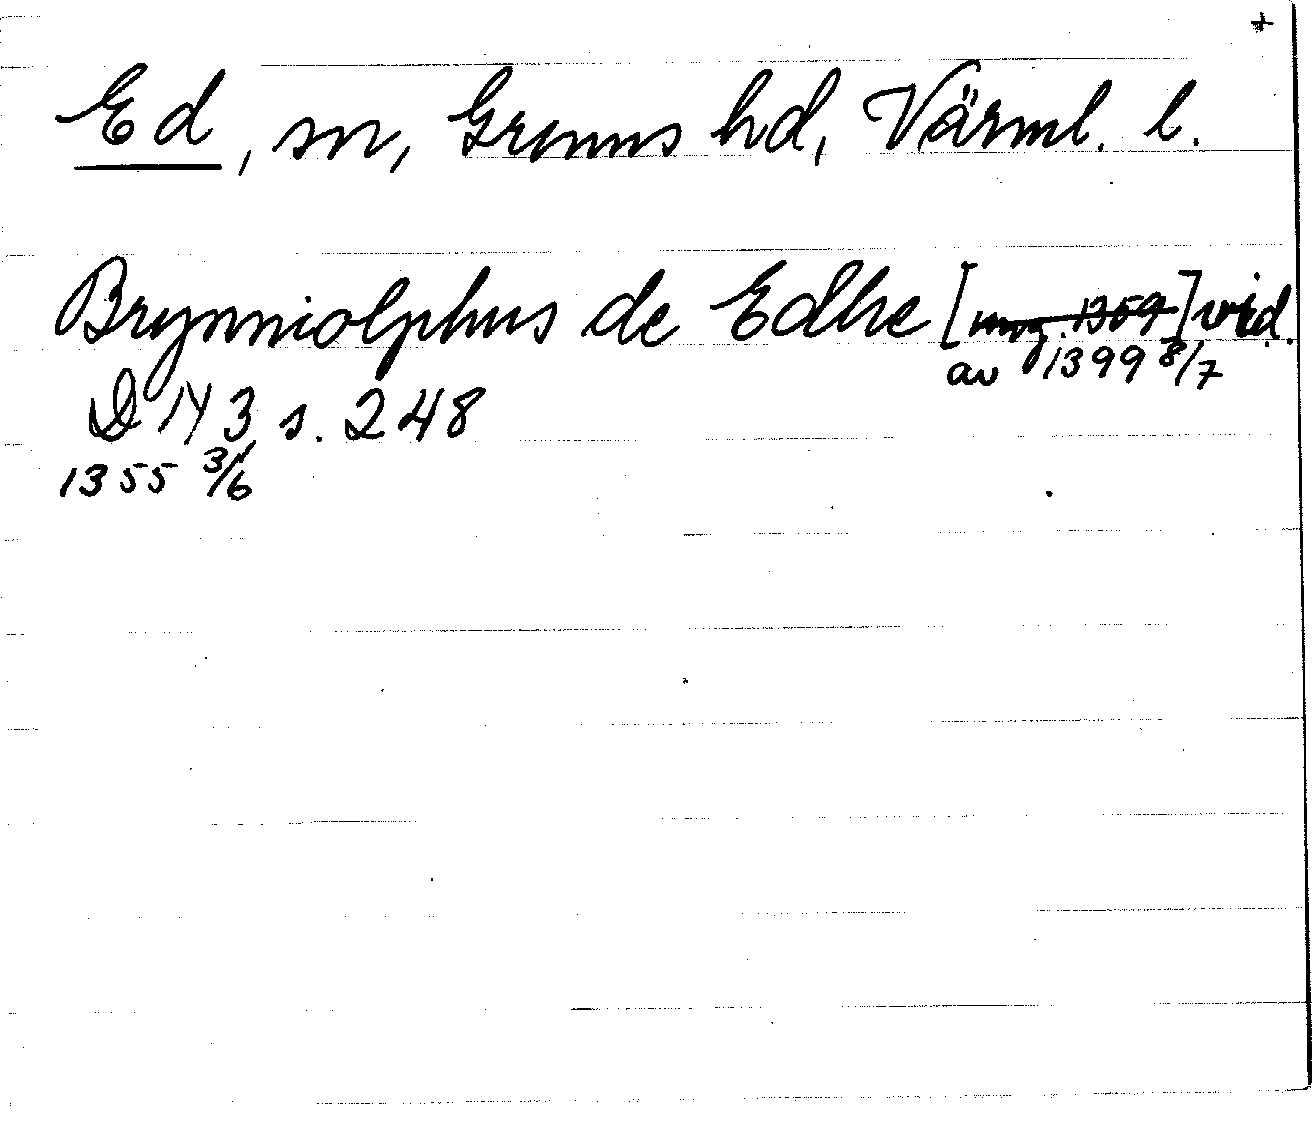 +
Ed, sn, Grums hd, Värml. l.
Brynniolphus de Edhe [omkr. 1369] vid.
av 1399 8/7
D 143 s. 248
1355 3/6